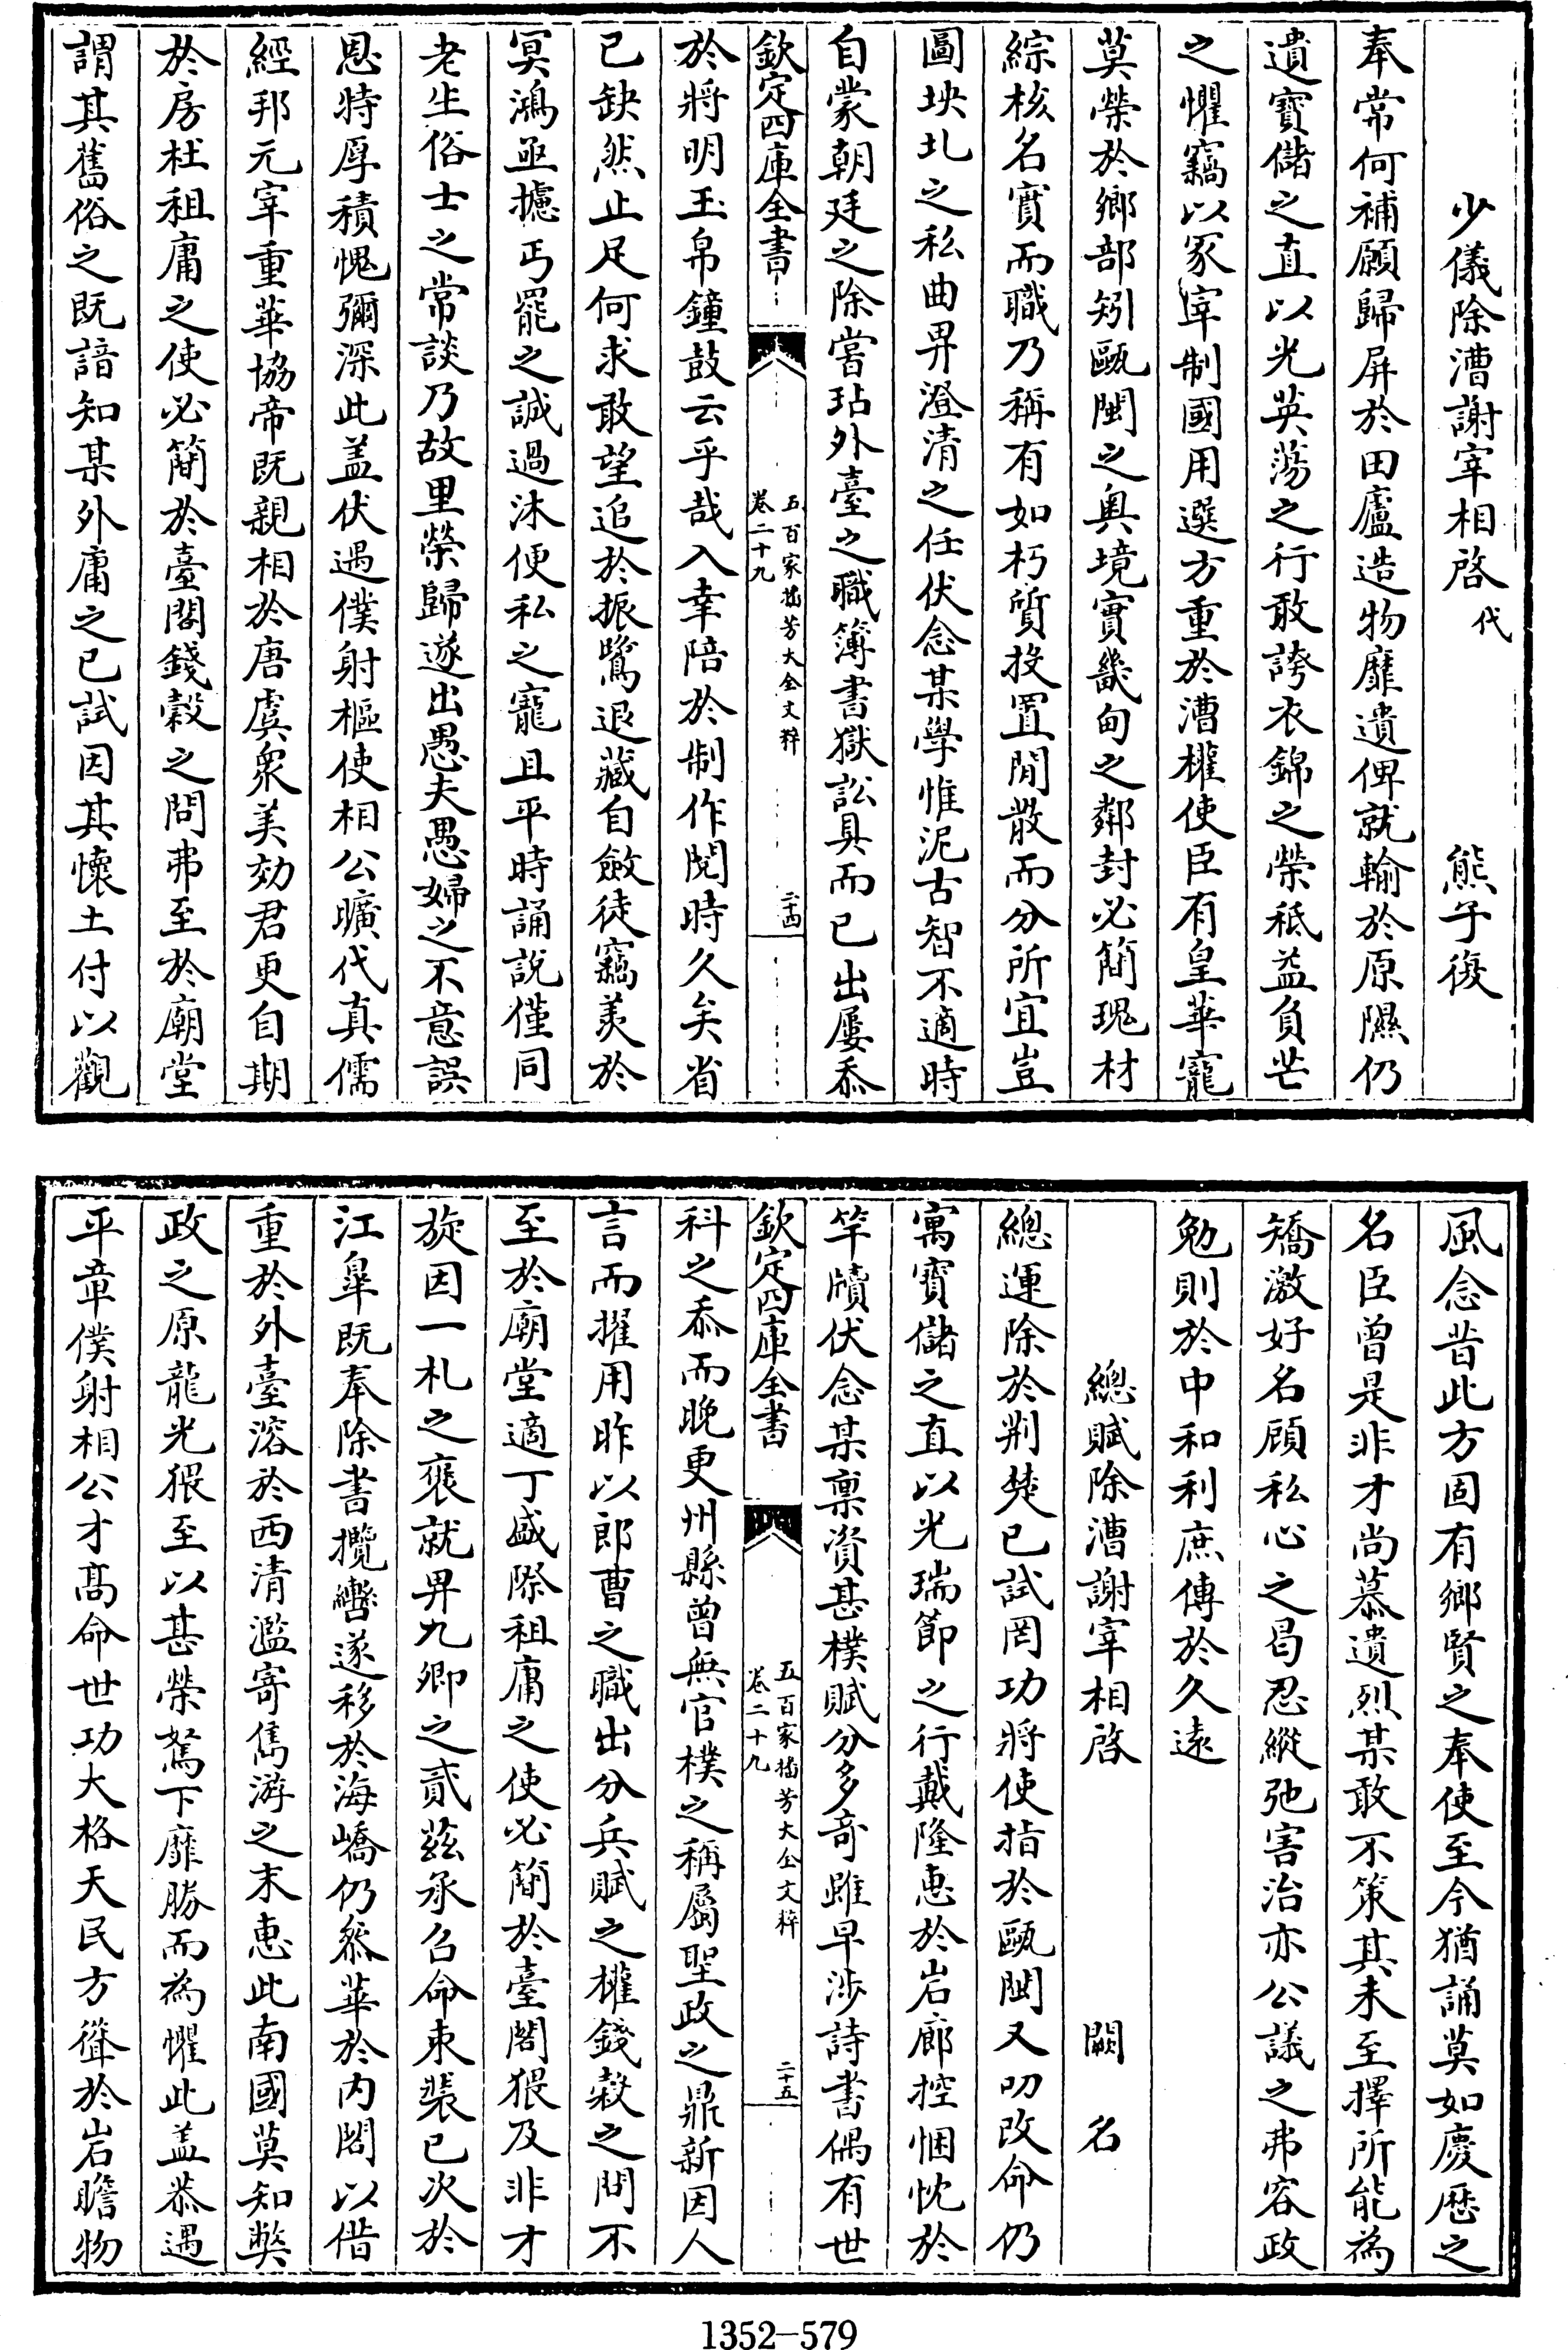 少儀除漕謝宰相啓代 熊子復
奉常何補願歸屏於田廬造物靡遺俾就輸於原隰仍
遺寳儲之直以光英蕩之行敢誇衣錦之榮祗益負芒
之懼竊以冢宰制國用選方重於漕權使臣有皇華寵
莫榮於鄉部矧甌閩之奥境實畿甸之鄰封必簡瑰材
綜核名實而職乃稱有如朽質投置閒散而分所宜豈
圖坱圠之私曲畀澄清之任伏念某學惟泥古智不適時
自蒙朝廷之除嘗玷外臺之職簿書獄訟具而已出屢忝
欽定四庫全書
五百家播芳大全文粹
卷二十九
二十四
於將明玉帛鐘鼓云乎哉入幸陪於制作閱時久矣省
已缺然止足何求敢望追於振鷺退藏自斂徒竊羡於
冥鴻亟攄丐罷之誠過沐便私之寵且平時誦說僅同
老生俗士之常談乃故里榮歸遂出愚夫愚婦之不意誤
恩特厚積愧彌深此盖伏遇僕射樞使相公曠代真儒
經邦元宰重華協帝既親相於唐虞衆美効君更自期
於房杜租庸之使必簡於臺閣錢榖之問弗至於廟堂
謂其舊俗之既諳知某外庸之已試因其懷土付以觀
風念昔此方固有鄉賢之奉使至今猶誦莫如慶歴之
名臣曾是非才尚慕遺烈某敢不策其未至擇所能為
矯激好名顧私心之曷忍縱弛害治亦公議之弗容政
勉則於中和利庶傳於久遠
總賦除漕謝宰相啓 闕名
總運除於荆楚已試罔功將使指於甌閩又叨改命仍
寓寳儲之直以光瑞節之行戴隆恵於岩廊控悃忱於
竿牘伏念某禀資甚樸賦分多竒雖早涉詩書偶有世
欽定四庫全書
五百家播芳大全文粹
卷二十九
二十五
科之忝而晚更州縣曾無官樸之稱屬聖政之鼎新因人
言而擢用昨以郎曹之職出分兵賦之權錢榖之問不
至於廟堂適丁盛際租庸之使必簡於臺閣猥及非才
旋因一札之褒就畀九卿之貳兹承召命束裝已次於
江臯既奉除書攬轡遂移於海嶠仍叅華於内閣以借
重於外臺溶於西清濫寄雋游之末恵此南國莫知弊
政之原龍光猥至以甚榮駑下靡勝而為懼此盖恭遇
平章僕射相公才髙命世功大格天民方聳於岩瞻物
1352-579